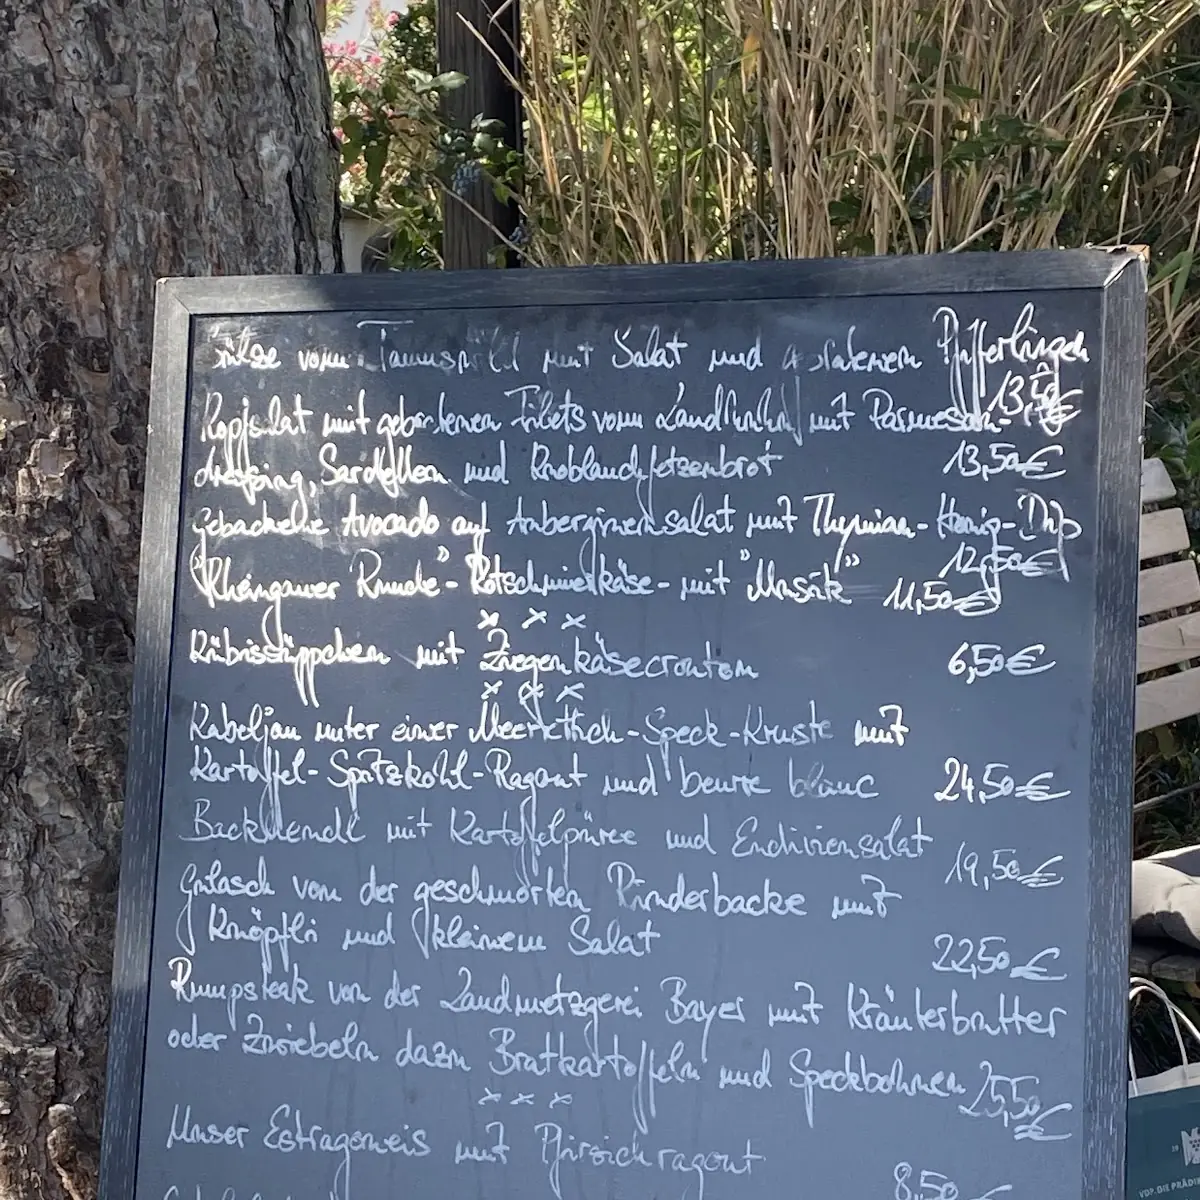 Sülze vom Tannuswild mit Salat und gebratenen Pfifferlingen
13,50€
Kopfsalat mit gebackenen Filets vom Landhuhn mit Parmesan-
dressing, Sardellen und Knoblauchfetzenbrot 13,50€
Gebackene Avocado auf Auberginensalat mit Thymian-Honig-Dip
12,50€
"Rheingauer Runde"-Rotschmierkäse-mit "Musik" 11,50€
x x x
Kürbissüppchen mit Ziegenkäsecrouton 6,50€
x x x
Kabeljau unter einer Meerrettich-Speck-Kruste mit
Kartoffel-Spitzkohl-Ragout und beurre blanc 24,50€
Backhendl mit Kartoffelpüree und Endiviensalat
19,50€
Gulasch von der geschmorten Rinderbacke mit
Knöpfli und kleinem Salat 22,50€
Rumpsteak von der Landmetzgerei Bayer mit Kräuterbutter
oder Zwiebeln dazu Bratkartoffeln und Speckbohnen 25,50€
x x x
Unser Estragoneis mit Pfirsichragout
8,50